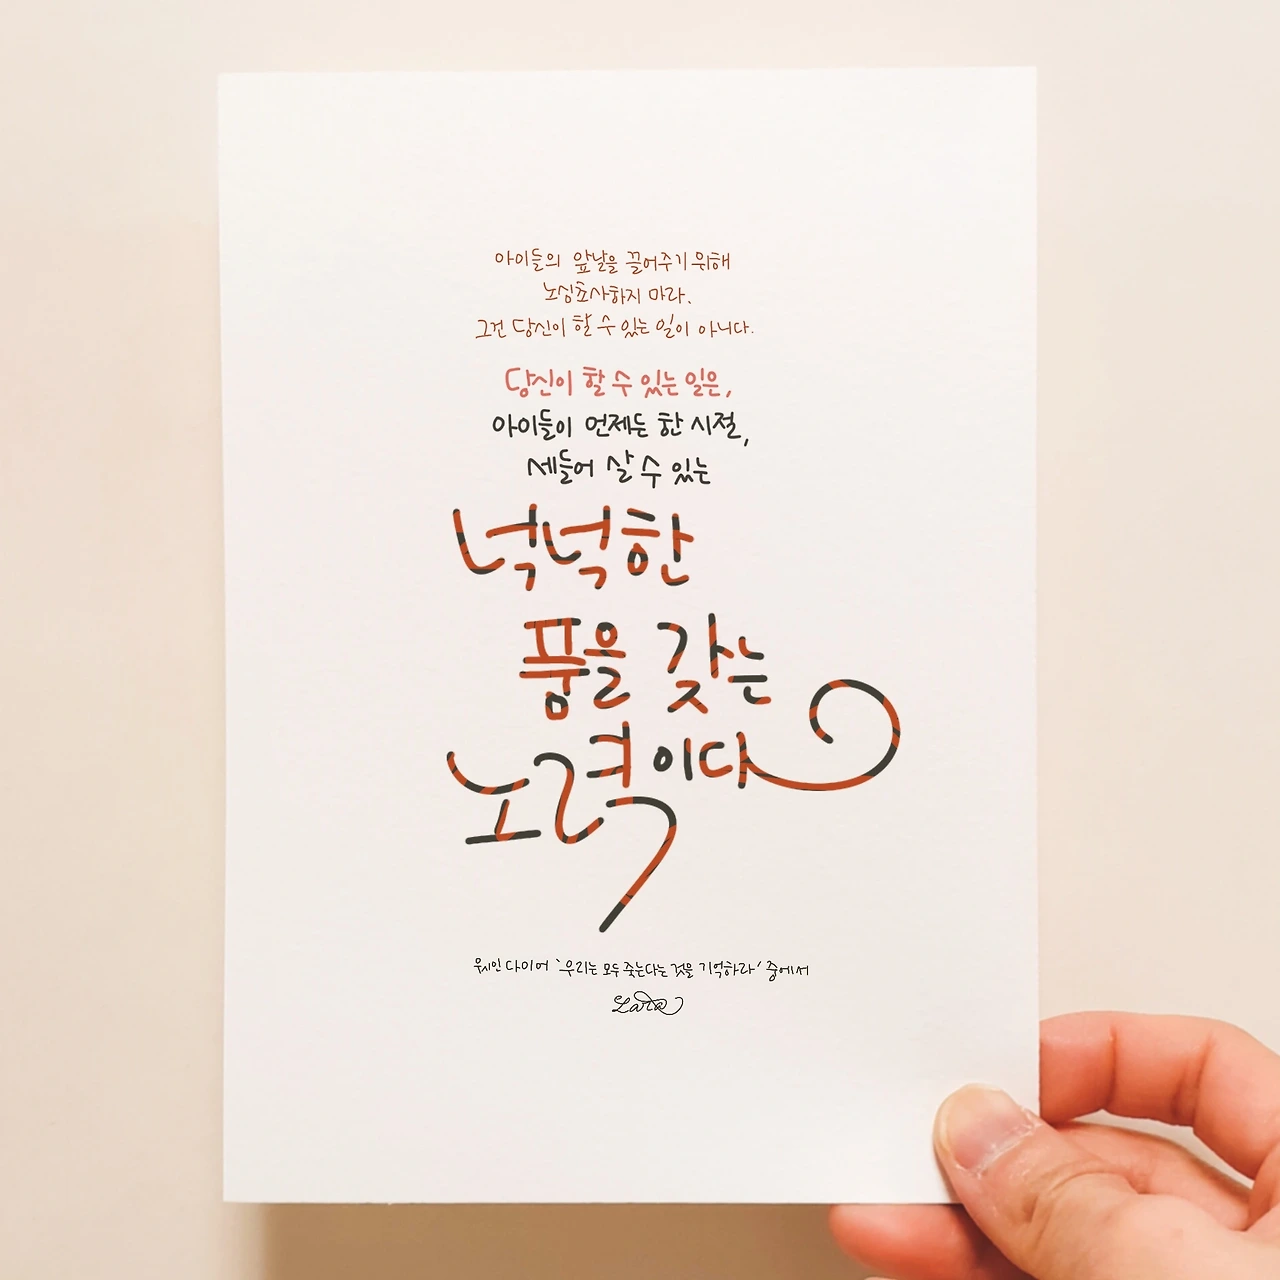 아이들의 앞날을 끌어주기 위해
노심초사하지 마라.
그건 당신이 할 수 있는 일이 아니다.
당신이 할 수 있는 일은,
아이들이 언제든 한 시절,
세들어 살 수 있는
넉넉한
품을 갖는
노력이다
웨인 다이어 '우리는 모두 죽는다는 것을 기억하라' 중에서
Lara